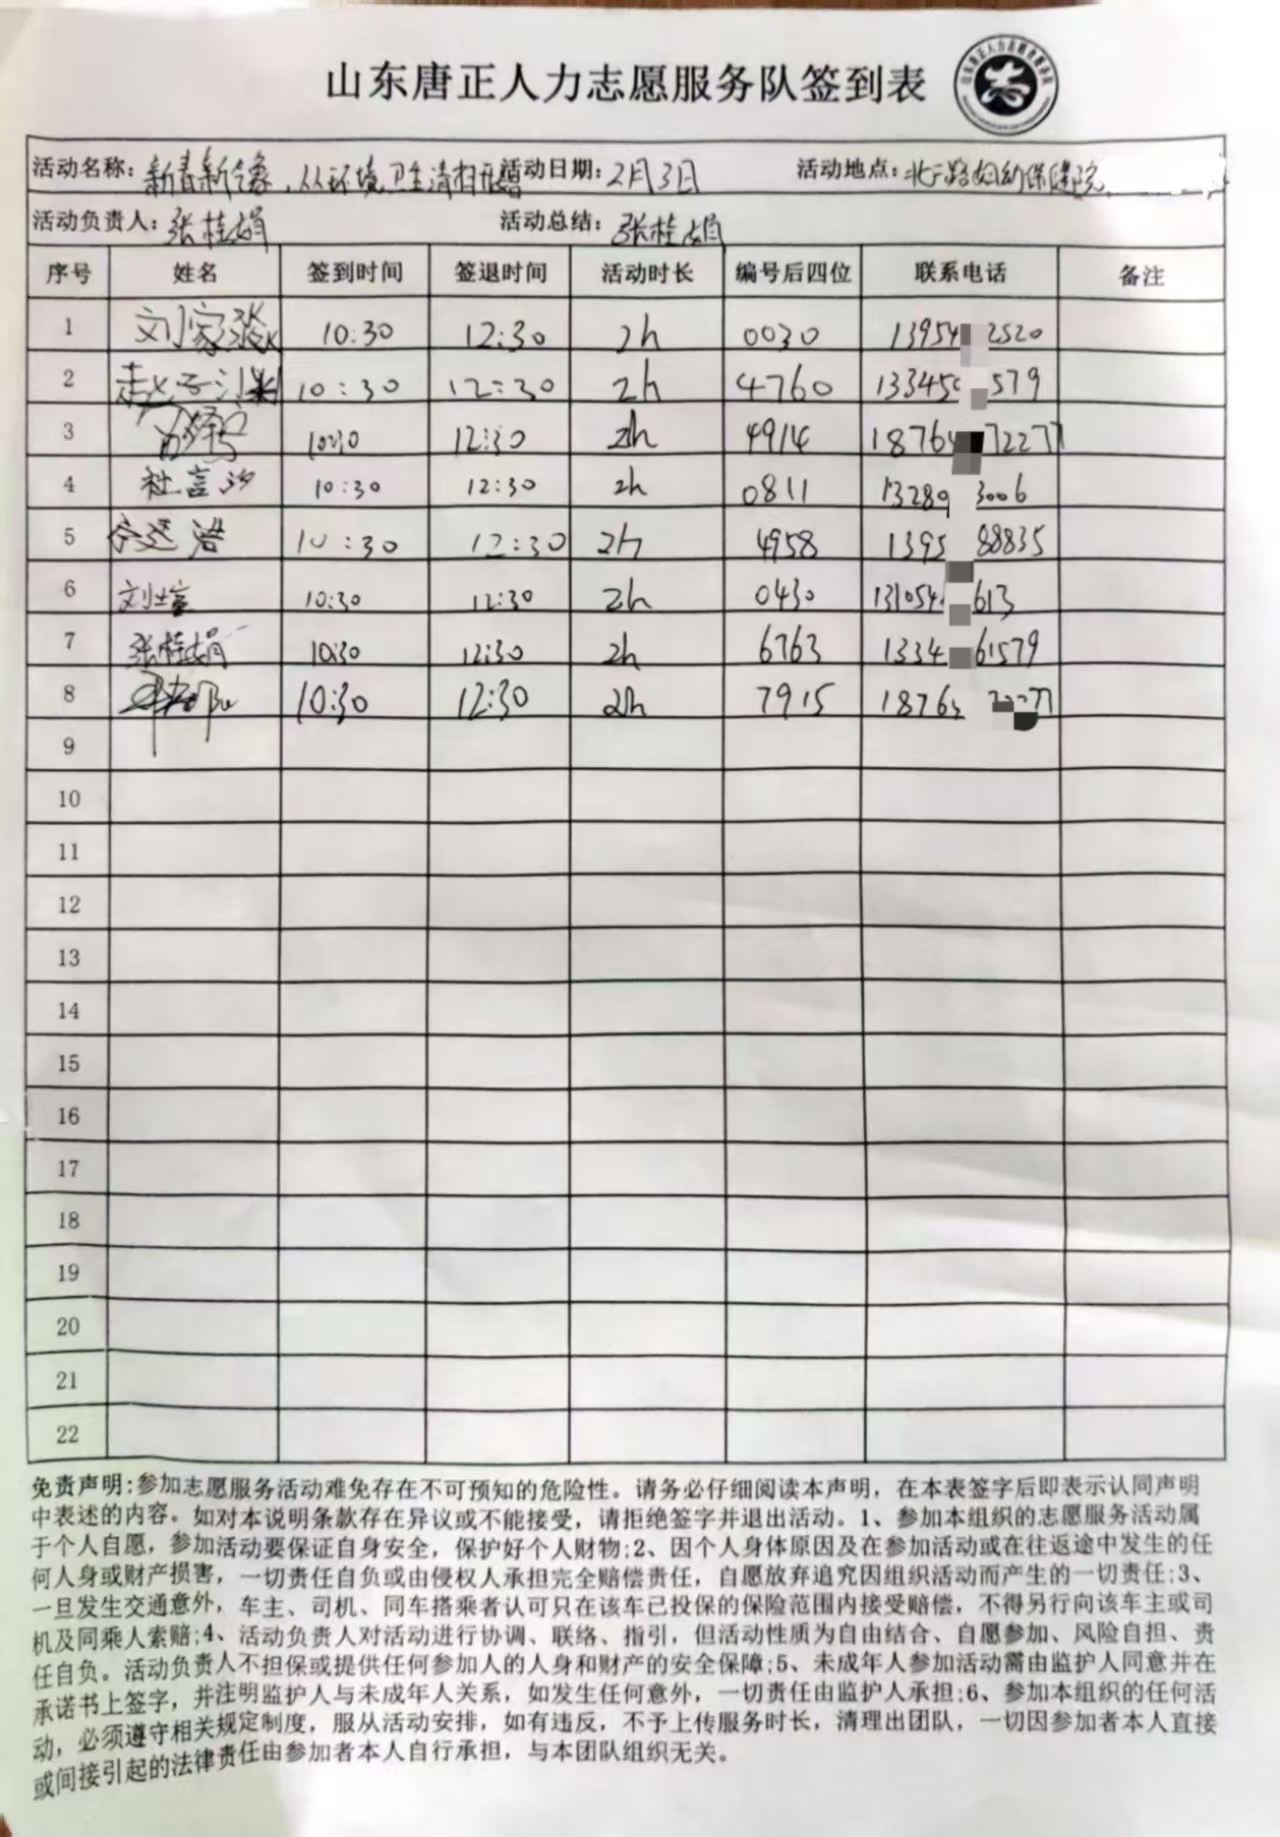 山东唐正人力志愿服务队签到表
活动名称: 新春新气象,从环境卫生清扫开始 活动日期: 2月3日 活动地点: 北二路妇幼保健院
活动负责人: 张桂娟 活动总结: 张桂娟
序号 姓名 签到时间 签退时间 活动时长 编号后四位 联系电话 备注
1 刘家 10:30 12:30 2h 0030 13954 2520
2 赵子 10:30 12:30 2h 4760 13345 579
3 10:30 12:30 2h 4914 1876 72277
4 杜言汐 10:30 12:30 2h 0811 13289 3006
5 10:30 12:30 2h 4958 1395 88835
6 刘 10:30 12:30 2h 0430 131054 613
7 张桂娟 10:30 12:30 2h 6763 1334 61579
8 10:30 12:30 2h 7915 1876
9
10
11
12
13
14
15
16
17
18
19
20
21
22
免责声明:参加志愿服务活动难免存在不可预知的危险性。请务必仔细阅读本声明，在本表签字后即表示认同声明
中表述的内容。如对本说明条款存在异议或不能接受，请拒绝签字并退出活动。1、参加本组织的志愿服务活动属
于个人自愿，参加活动要保证自身安全，保护好个人财物;2、因个人身体原因及在参加活动或在往返途中发生的任
何人身或财产损害，一切责任自负或由侵权人承担完全赔偿责任，自愿放弃追究因组织活动而产生的一切责任;3、
一旦发生交通意外，车主、司机、同车搭乘者认可只在该车已投保的保险范围内接受赔偿，不得另行向该车主或司
机及同乘人索赔;4、活动负责人对活动进行协调、联络、指引，但活动性质为自由结合、自愿参加、风险自担、责
任自负。活动负责人不担保或提供任何参加人的人身和财产的安全保障;5、未成年人参加活动需由监护人同意并在
承诺书上签字，并注明监护人与未成年人关系，如发生任何意外，一切责任由监护人承担;6、参加本组织的任何活
动，必须遵守相关规定制度，服从活动安排，如有违反，不予上传服务时长，清理出团队，一切因参加者本人直接
或间接引起的法律责任由参加者本人自行承担，与本团队组织无关。